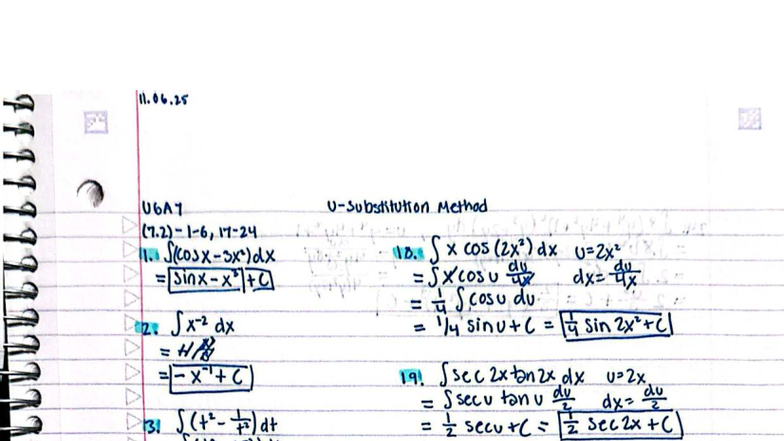 11.06.25
U6A7
U-Substitution Method
(7.2)-1-6, 17-24
1. ∫(cosx-3x²)dx
= sinx-x³+C
2. ∫x⁻² dx
= -x⁻¹+C
3. ∫(t²-1/t²)dt
18. ∫x cos(2x²)dx u=2x²
= ∫x cosu du/4x dx=du/4x
= 1/4 ∫cosu du
= 1/4 sinu+C = 1/4 sin 2x²+C
19. ∫sec2x tan2x dx u=2x
= ∫secu tanu du/2 dx=du/2
= 1/2 secu+C = 1/2 sec2x+C